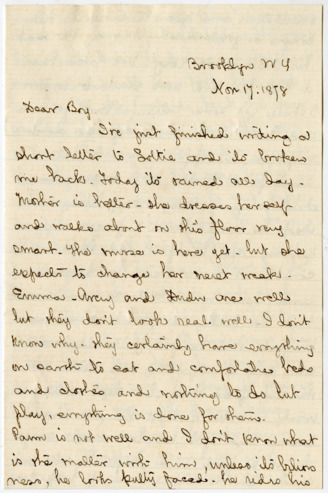 Brooklyn N Y
Nov 17. 1878
Dear Boy
I've just finished writing a
short letter to Lottie and its broken
me back. Today its rained all day.
Mother is better. She dresses herself
and walks about on this floor very
smart. The nurse is here yet. but she
expects to change her next week.
Emma and are well
but they don't look real well. I don't
know why. they certainly have everything
on earth to eat and comfortable beds
and clothes and nothing to do but
play, everything is done for them.
is not well and I don't know what
is the matter with him, unless its bilious
ness, he looks putty faced. he rides his